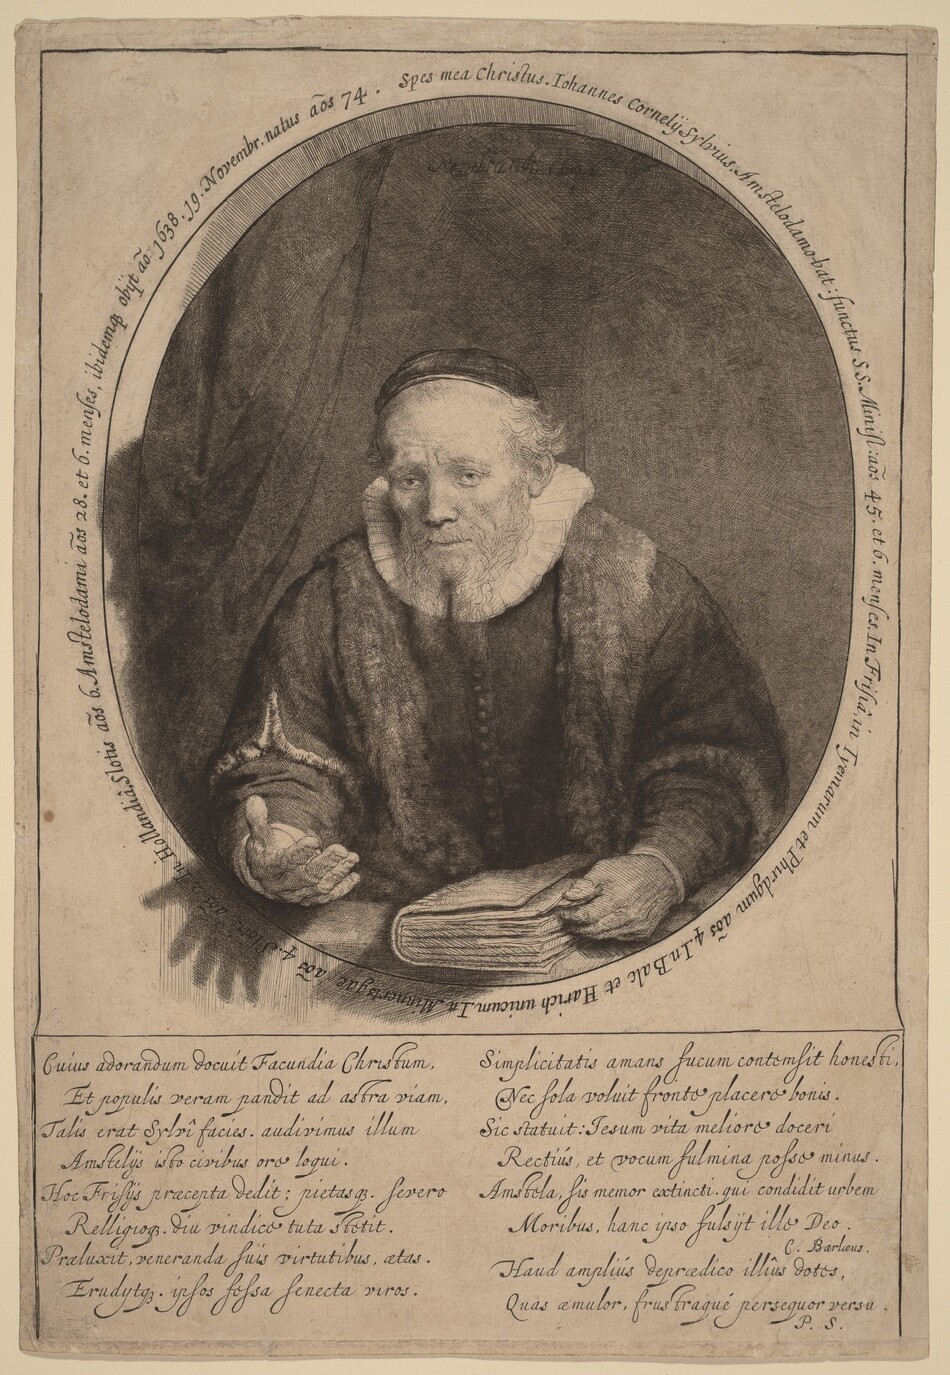 Spes mea Christus. Iohannes Cornelij Sylvius. Amstelodamobat: functus S.S. Minist: aōs 45. et 6. menses. In Frisia in Tyenarum et Phirdgum aōs 4. In Balc et Harich unicum. In Minnertsgae aōs 4. Slotis aōs 6. Amstelodami aōs 28. et 6. menses, ibidemq3 obijt aō. 1638. 19. Novembr. natus aōs 74.
Cuius adorandum docuit Facundia Christum,
Et populis veram pandit ad astra viam,
Talis erat Sylvî facies. audivimus illum
Amstelijs isto civibus ore loqui.
Hoc Frisijs præcepta dedit; pietasq3. severo
Relligioq3. diu vindice tuta stetit.
Præluxit, veneranda suis virtutibus, ætas.
Erudytq3. ipsos fessa senecta viros.
Simplicitatis amans fucum contemsit honesti,
Nec sola voluit fronte placere bonis.
Sic statuit: Jesum vita meliore doceri
Rectiús, et vocum fulmina posse minus.
Amstela, sis memor extincti. qui condidit urbem
Moribus, hanc ipso fulsijt ille Deo.
C. Barlæus.
Haud ampliús deprædico illiûs dotes,
Quas æmulor, frustraque persequor versu.
P. S.